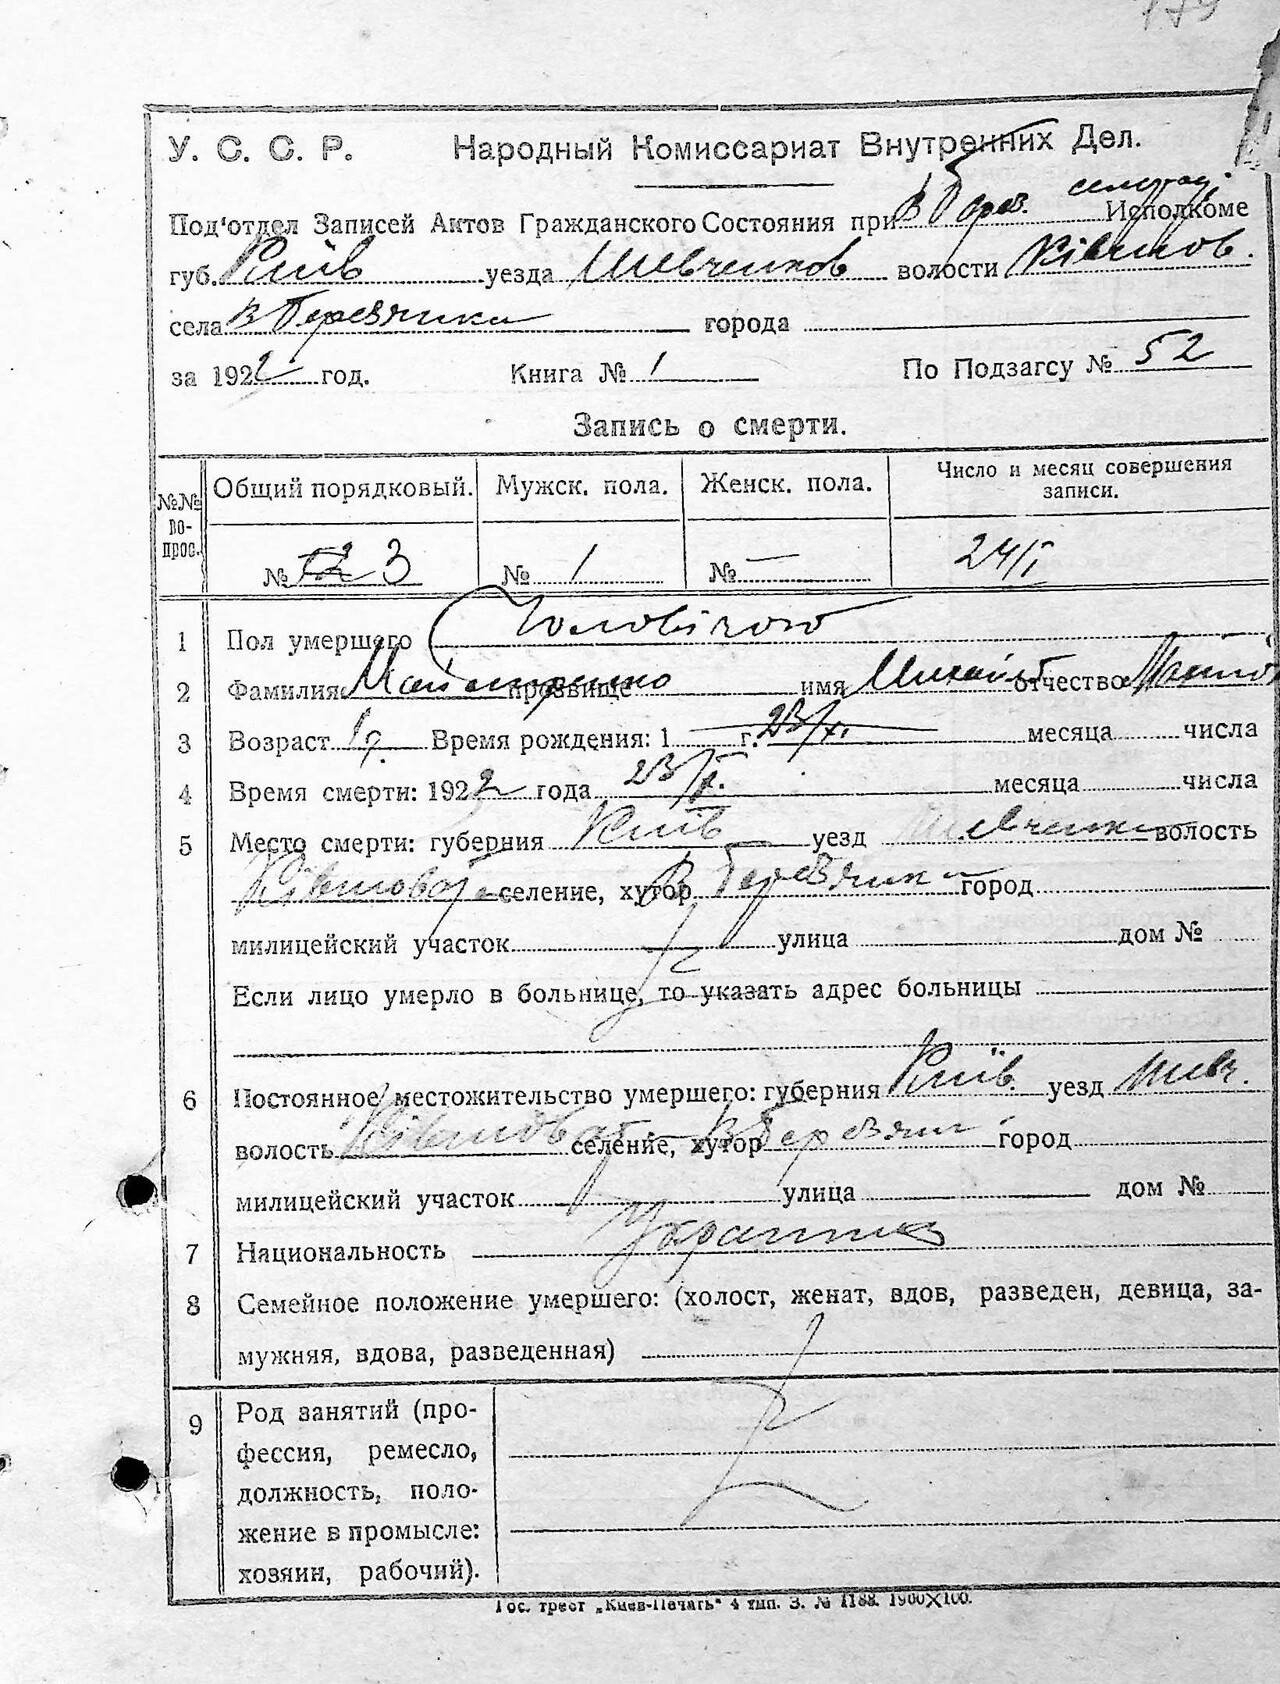 У. С. С. Р. Народный Комиссариат Внутренних Дел.
Под'отдел Записей Актов Гражданского Состояния при В Берез. Исполкоме
губ. Київ уезда Шевченков волости
села В Березянка города
за 1922 год. Книга № 1 По Подзагсу № 52
Запись о смерти.
№№ вопрос. Общий порядковый. Мужск. пола. Женск. пола. Число и месяц совершения записи.
№ 3 № 1 № — 24/I
1 Пол умершего Чоловічого
2 Фамилия прозвище имя Михайло отчество
3 Возраст 1 р. Время рождения: 1 г. 23/XI. месяца числа
4 Время смерти: 1922 года 23/I. месяца числа
5 Место смерти: губерния Київ уезд Шевченк волость
селение, хутор В Березянка город
милицейский участок улица дом №
Если лицо умерло в больнице, то указать адрес больницы
6 Постоянное местожительство умершего: губерния Київ. уезд Шевч.
волость селение, хутор В Березян город
милицейский участок улица дом №
7 Национальность
8 Семейное положение умершего: (холост, женат, вдов, разведен, девица, за-
мужняя, вдова, разведенная)
9 Род занятий (про-
фессия, ремесло,
должность, поло-
жение в промысле:
хозяин, рабочий).
Гос. трест „Киев-Печать“ 4 тип. З. № 1188. 1900×100.